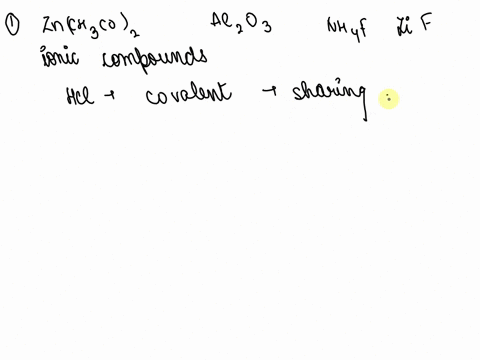 ① Zn(CH₃CO)₂ Al₂O₃ NH₄F LiF
ionic compounds
HCl → covalent → sharing